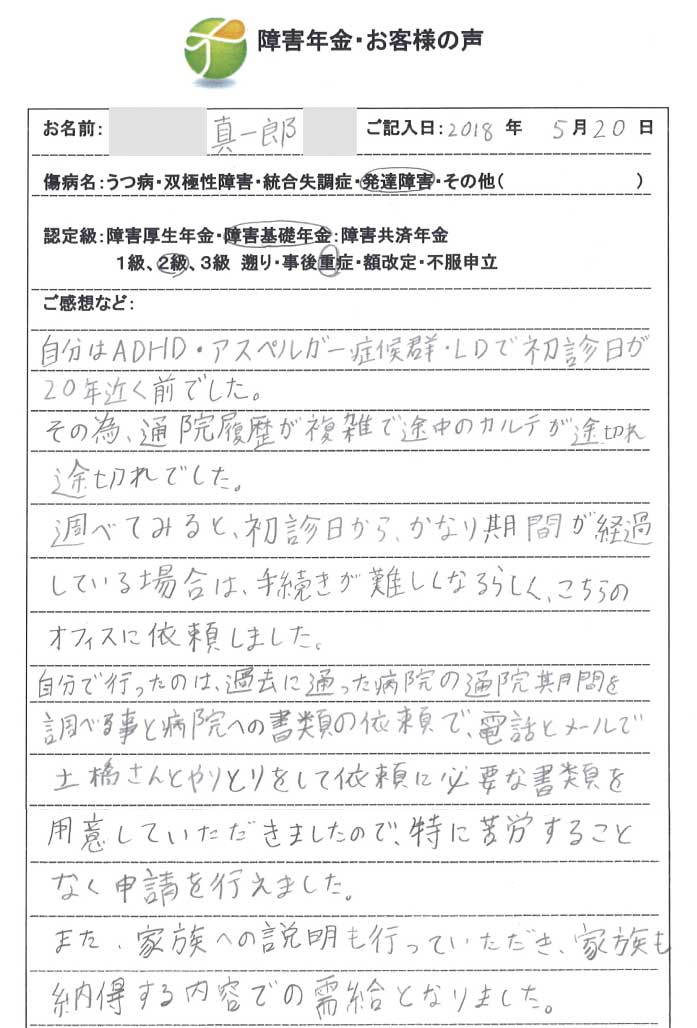 障害年金・お客様の声
お名前: 真一郎 ご記入日: 2018 年 5月 20 日
傷病名:うつ病・双極性障害・統合失調症・発達障害・その他( )
認定級:障害厚生年金・障害基礎年金:障害共済年金
1級、2級、3級 遡り・事後重症・額改定・不服申立
ご感想など:
自分はADHD・アスペルガー症候群・LDで初診日が
20年近く前でした。
その為、通院履歴が複雑で途中のカルテが途切れ
途切れでした。
調べてみると、初診日から、かなり期間が経過
している場合は、手続きが難しくなるらしく、こちらの
オフィスに依頼しました。
自分で行ったのは、過去に通った病院の通院期間を
調べる事と病院への書類の依頼で、電話とメールで
土橋さんとやりとりをして依頼に必要な書類を
用意していただきましたので、特に苦労すること
なく申請を行えました。
また、家族への説明も行っていただき、家族も
納得する内容での需給となりました。